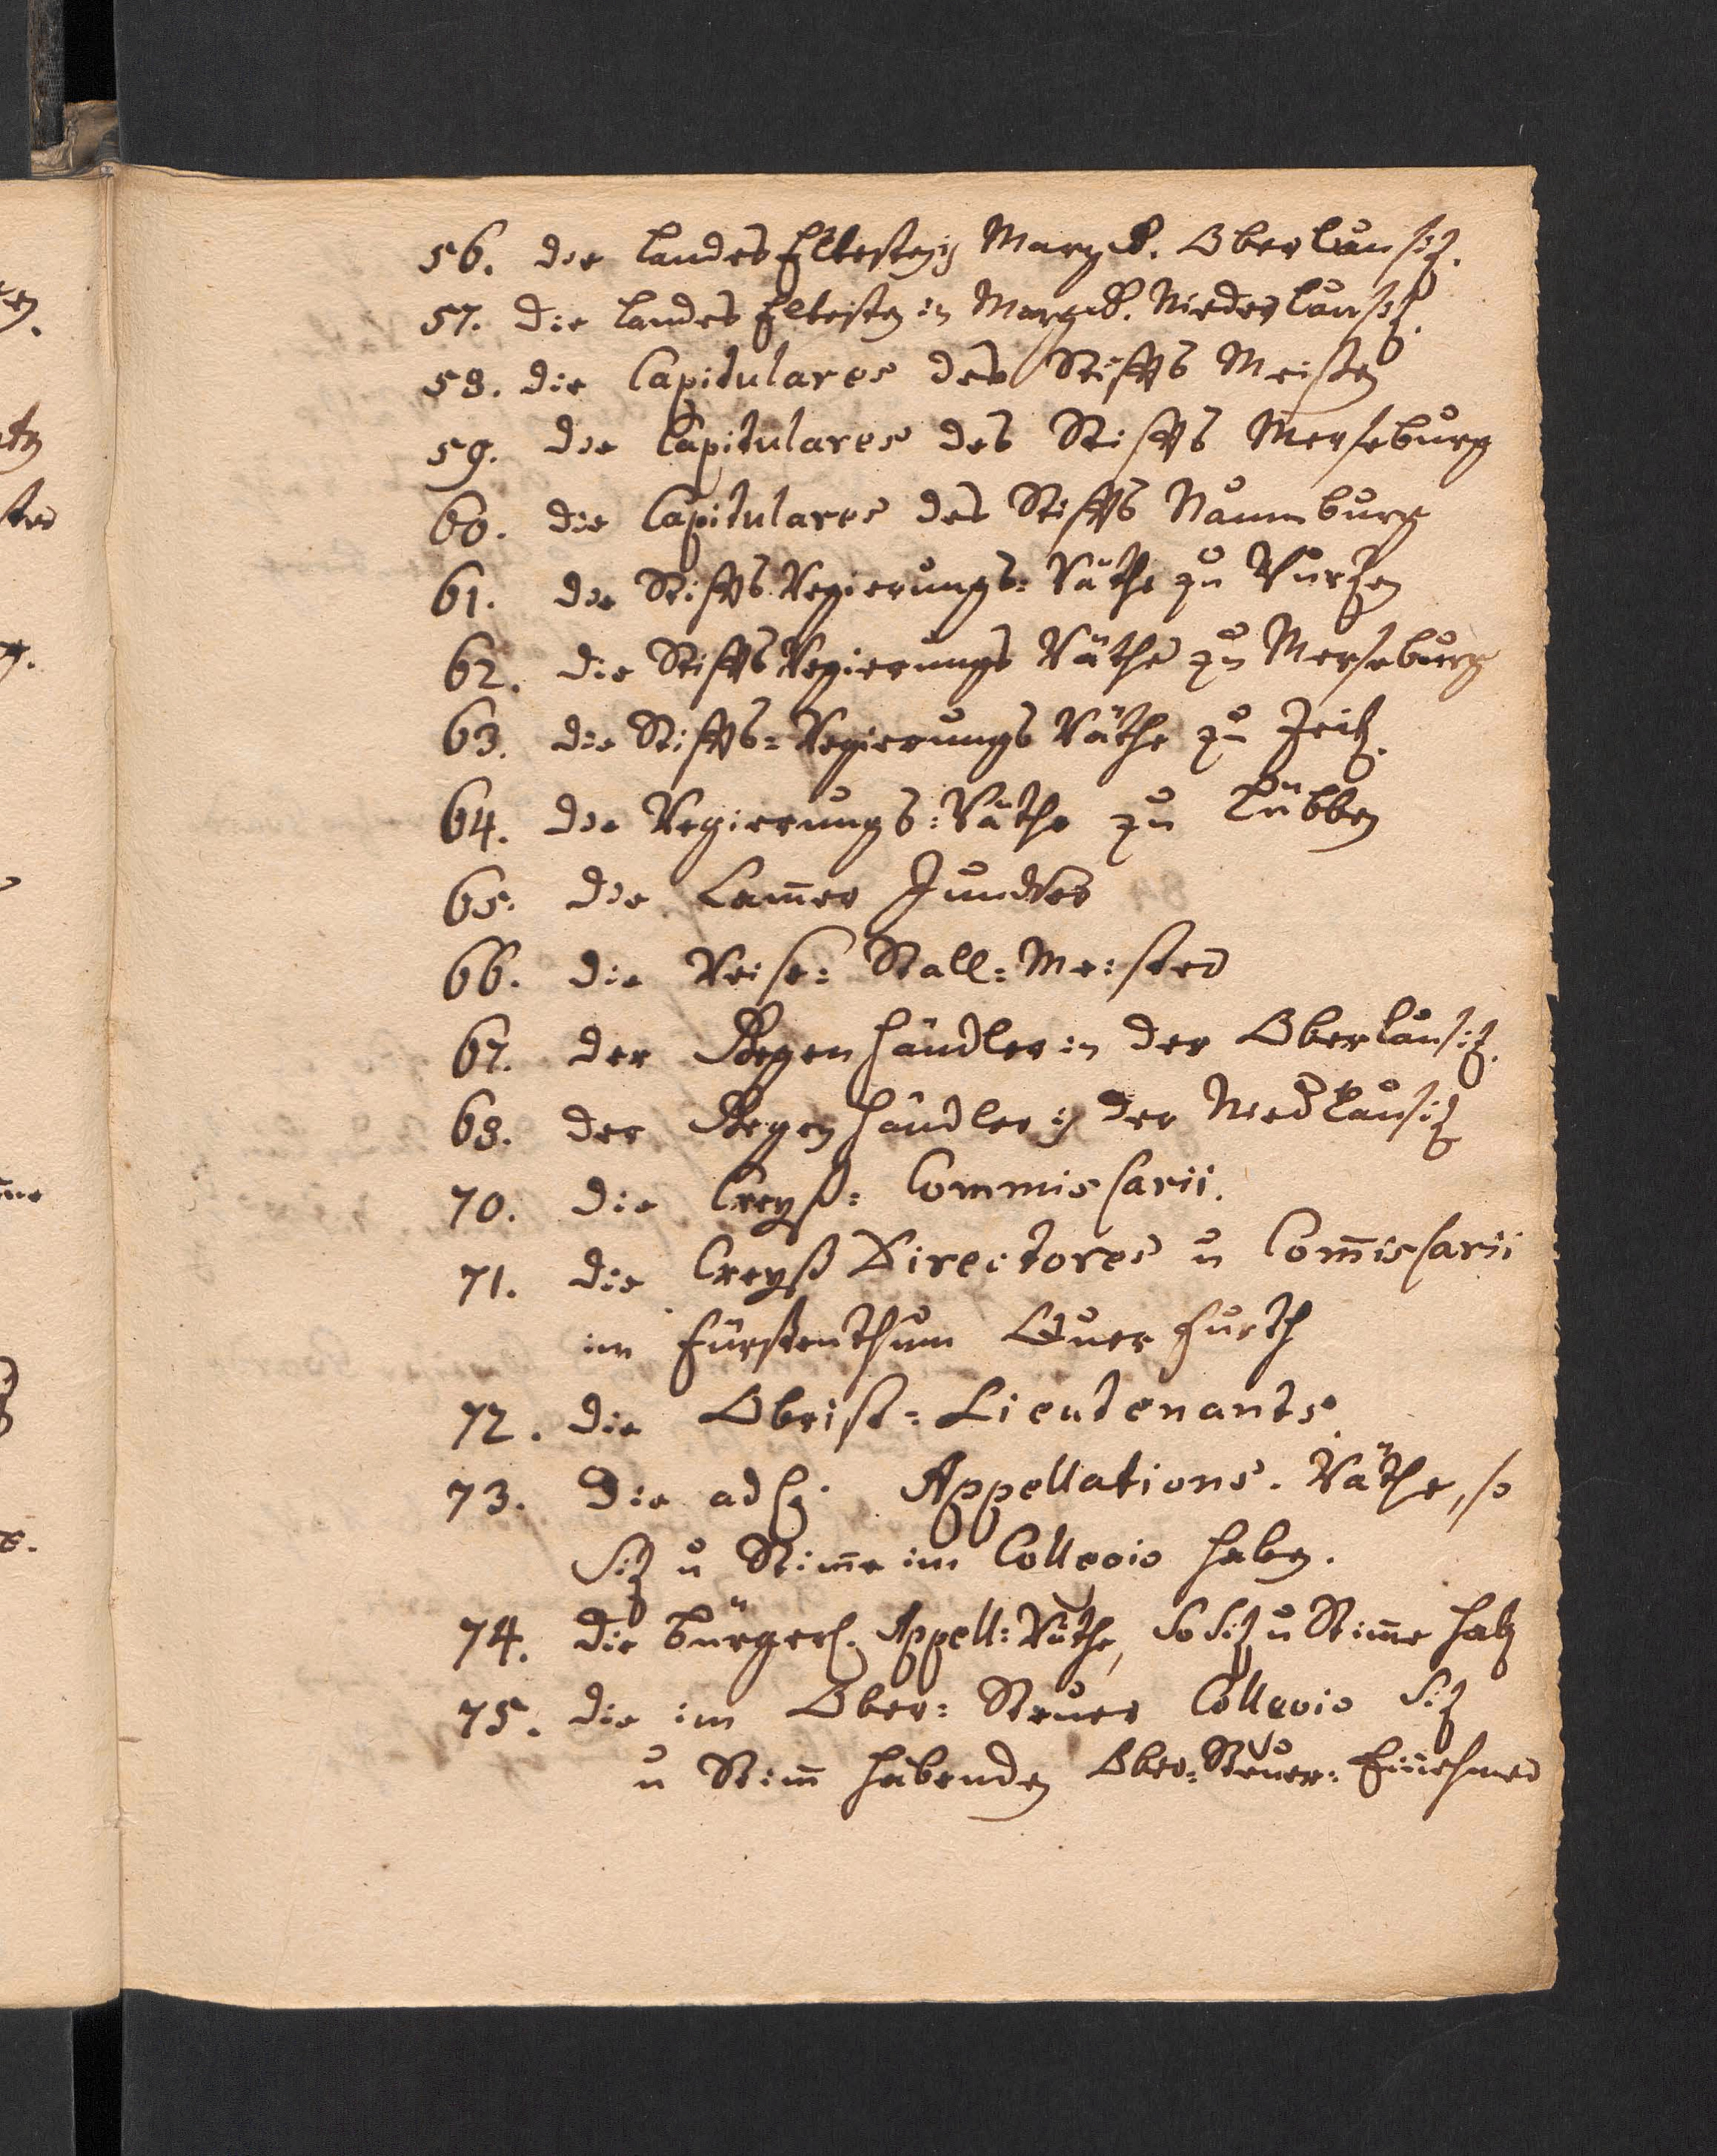 56. die Landes Eltesten in Margd. Oberlausitz.
57. Die Landes Eltesten in Margd. Niederlausitz.
58. die Capitulares des Stiffts Meisen
59. die Capitulares des Stiffts Merseburg
60. die Capitulares des Stiffts Naumburg
61. die Stiffts Regierungs: Räthe zu Wurzen
62. die Stiffts Regierungs Räthe zu Merseburg
63. die Stiffts: Regierungs Räthe zu Zeitz.
64. die Regierungs: Räthe zu Lübben
65. die Cam̄er Juncker
66. die Reise: Stall: Meister
67. der Gegenhändler in der Oberlausitz.
68. der Gegenhändler in der Niedlausitz
70. die Creyß: Commissarii.
71. die Creyß Directores u Com̄issarii
im Fürstenthum Querfurth
72. die Obrist: Lieutenants.
73. Die adl. Appellations. Räthe, so
Sitz u Stim̄e im Collegio haben.
74. Die bürgerl. Appell: Räthe, So Sitz u Stim̄e habn
75. die im Ober: Steuer Collegio Sitz
u Stim̄ habenden Ober: Steuer: Einnehmer